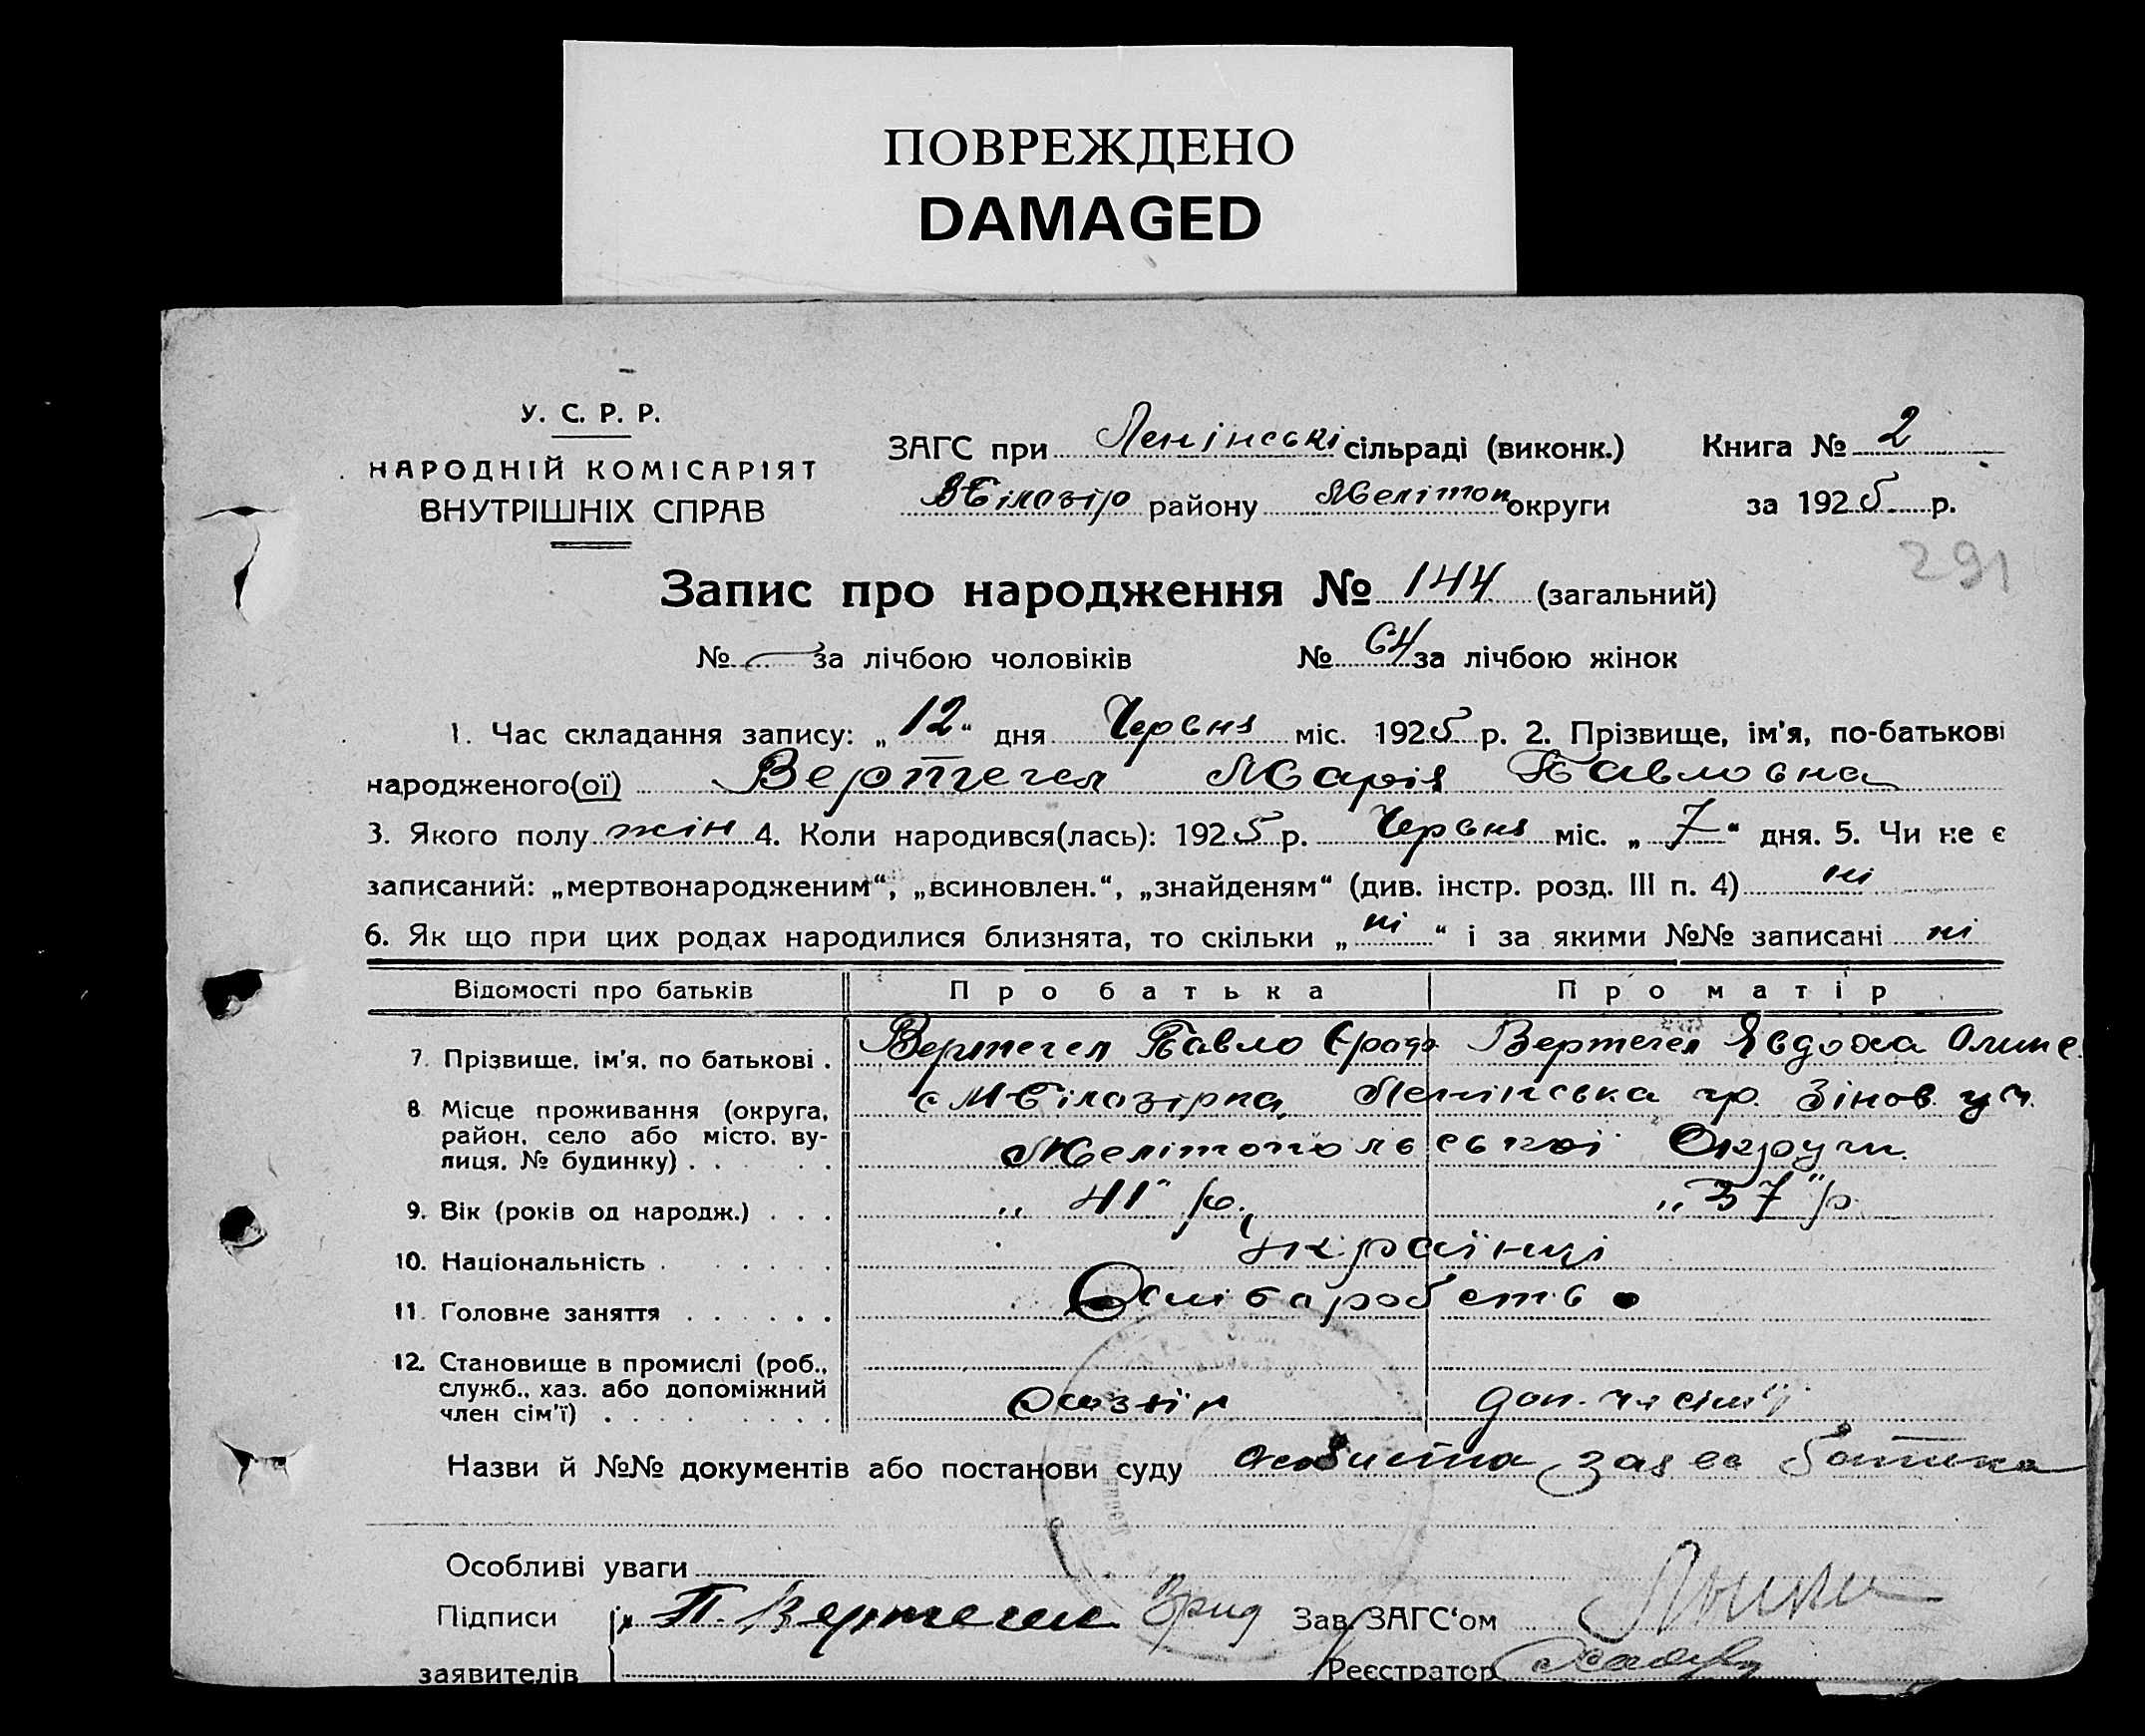 ПОВРЕЖДЕНО
DAMAGED
У. С. Р. Р.
НАРОДНІЙ КОМІСАРІЯТ
ВНУТРІШНІХ СПРАВ
ЗАГС при Ленінські сільраді (виконк.) Книга № 2
району Мелітоп округи за 1925 р.
291
Запис про народження № 144 (загальний)
№ — за лічбою чоловіків № 64 за лічбою жінок
1. Час складання запису: „12“ дня Червня міс. 1925 р. 2. Прізвище, ім'я, по-батькові
народженого(ої) Вертегел Марія Павловна
3. Якого полу жін 4. Коли народився(лась): 1925 р. Червня міс. „7“ дня. 5. Чи не є
записаний: „мертвонародженим“, „всиновлен.“, „знайденям“ (див. інстр. розд. III п. 4) ні
6. Як що при цих родах народилися близнята, то скільки „ні“ і за якими №№ записані ні
Відомості про батьків Про батька Про матір
7. Прізвище, ім'я, по батькові . Вертегел Павло Вертегел Явдоха
8 Місце проживання (округа, район, село або місто, ву-
лиця, № будинку) . . . . . с М Білозірка, Ленінська гр. Зінов. уч.
Мелітопольської Округи.
9. Вік (років од народж.) . . . „41“ р., „37“ р
10. Національність . . . . . . українці
11. Головне заняття . . . . . . Хліборобств
12. Становище в промислі (роб.,
служб., хаз. або допоміжний
член сім'ї) . . . . . . . . . Хазяїн доп. чл сім'ї
Назви й №№ документів або постанови суду особиста заява батька
Особливі уваги
Підписи П. Вертегел Зав. ЗАГС‘ом
заявителів Реєстратор